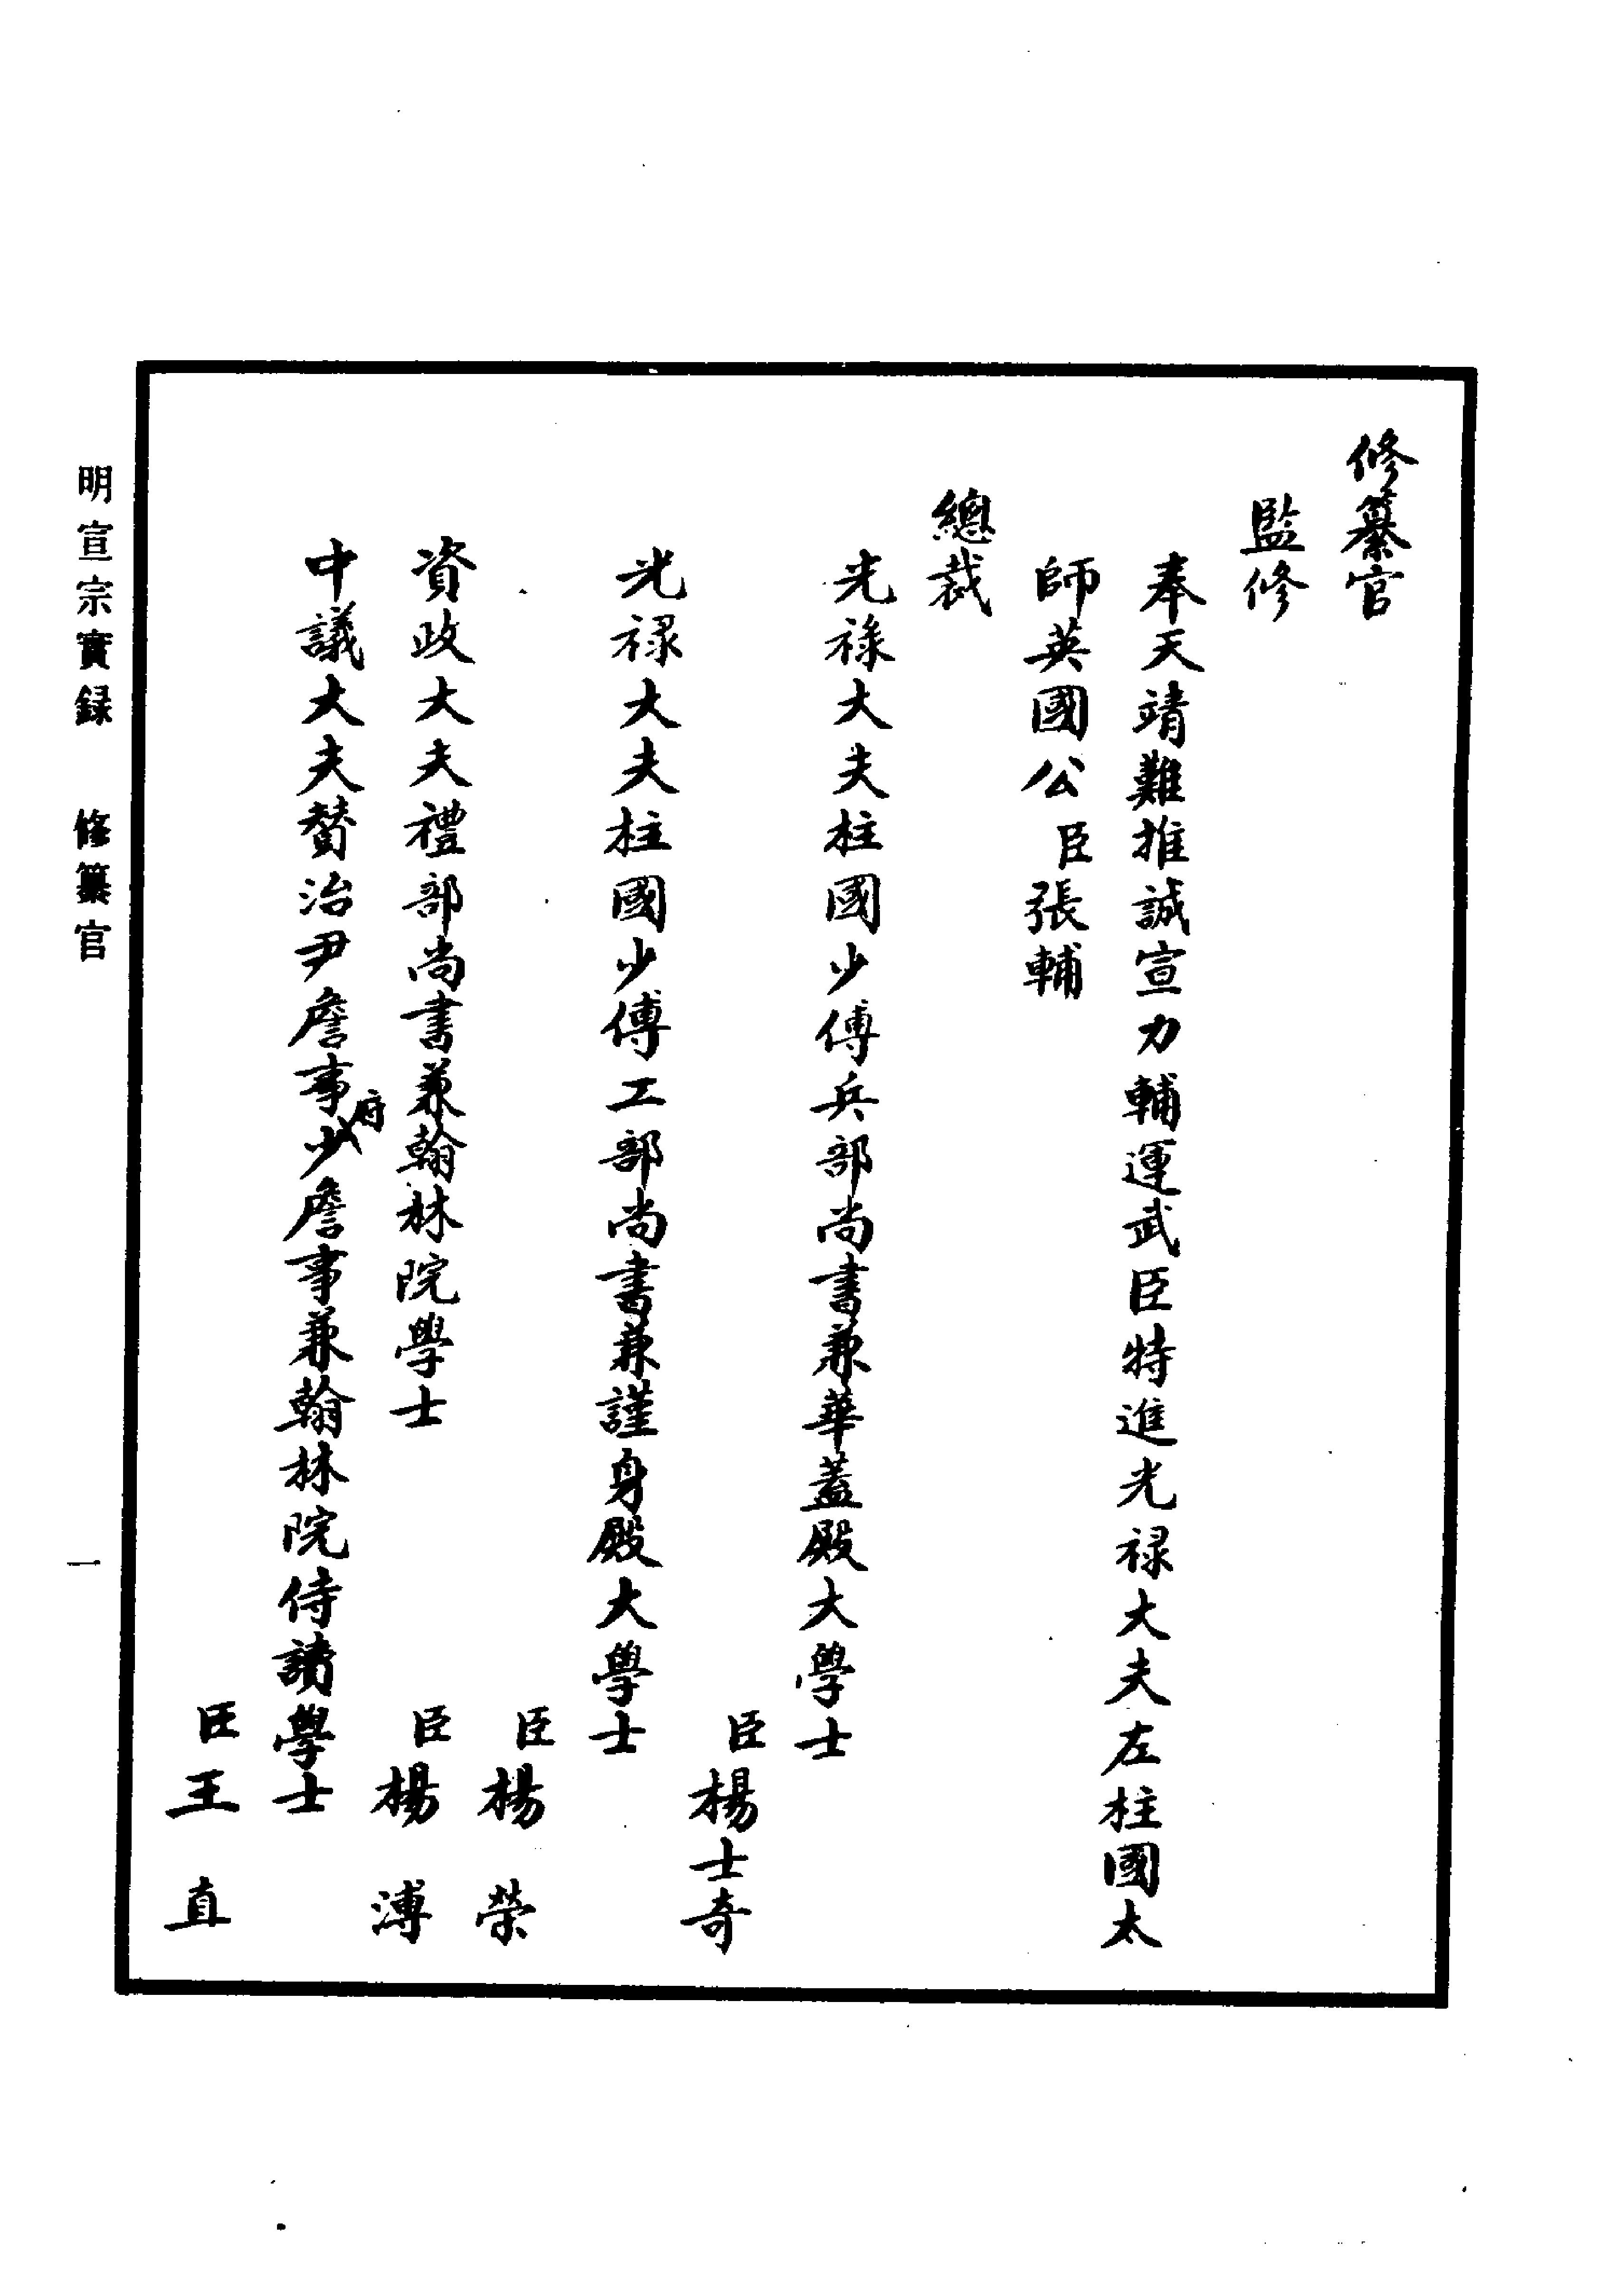 修纂官
監修
奉天靖難推誠宣力輔運武臣特進光祿大夫左柱國太
師英國公臣張輔
總裁
光祿大夫柱國少傅兵部尚書兼華蓋殿大學士
臣楊士奇
光禄大夫柱國少傅工部尚書兼謹身殿大學士
臣楊榮
資政大夫禮部尚書兼翰林院學士
臣楊溥
中議大夫贊治尹詹事府少詹事兼翰林院侍讀學士
臣王直
明宣宗實録 修纂官 一